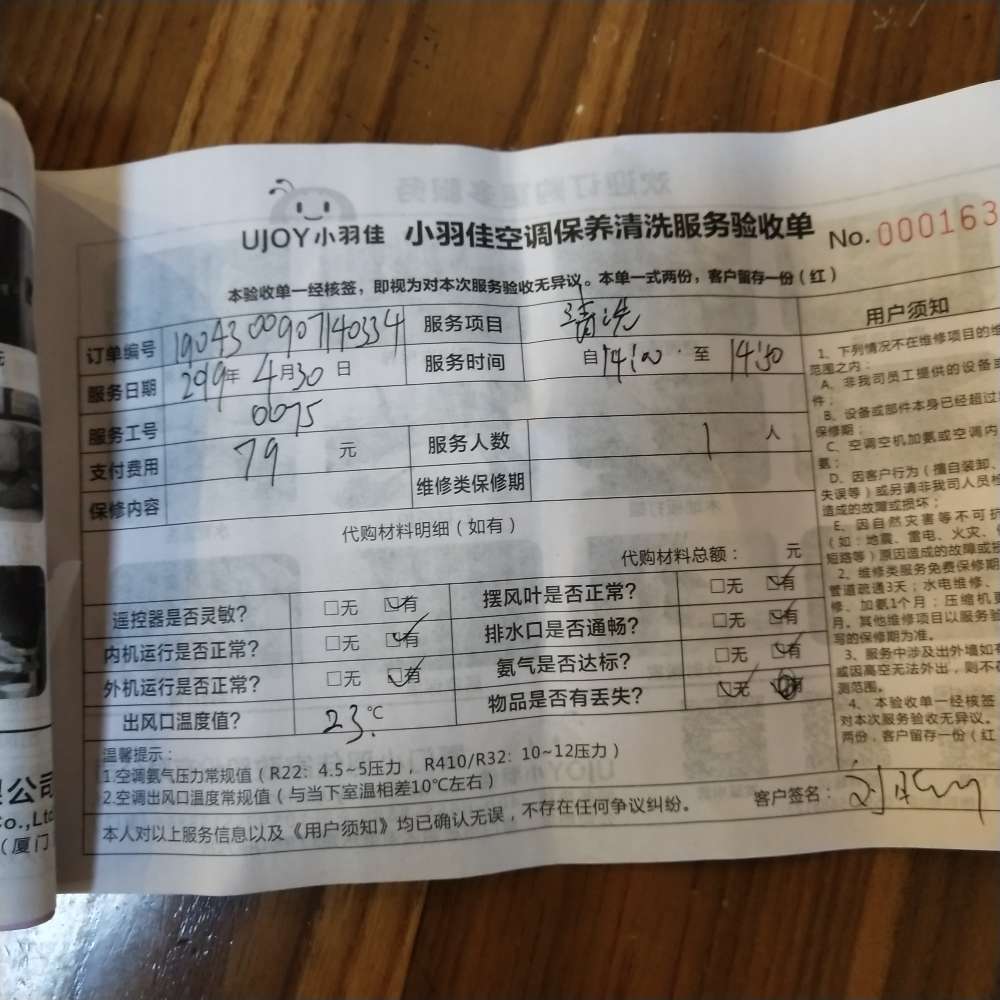 UJOY小羽佳 小羽佳空调保养清洗服务验收单 No. 000163
本验收单一经核签，即视为对本次服务验收无异议。本单一式两份，客户留存一份（红）
订单编号 1904300907140334 服务项目 清洗
服务日期 2019年4月30日 服务时间 自14:00至14:30
服务工号 0075
支付费用 79 元 服务人数 1 人
保修内容 维修类保修期
代购材料明细（如有）
代购材料总额： 元
遥控器是否灵敏？ □无 ☑有 摆风叶是否正常？ □无 ☑有
内机运行是否正常？ □无 ☑有 排水口是否通畅？ □无 ☑有
外机运行是否正常？ □无 ☑有 氨气是否达标？ □无 ☑有
出风口温度值？ 23℃ 物品是否有丢失？ ☑无
温馨提示：
1.空调氨气压力常规值（R22：4.5~5压力，R410/R32：10~12压力）
2.空调出风口温度常规值（与当下室温相差10℃左右）
本人对以上服务信息以及《用户须知》均已确认无误，不存在任何争议纠纷。 客户签名：
用户须知
1、下列情况不在维修项目的维
范围之内：
A、非我司员工提供的设备或
件；
B、设备或部件本身已经超过
保修期；
C、空调空机加氨或空调内
氨；
D、因客户行为（擅自装卸、
失误等）或另请非我司人员
造成的故障或损坏；
E、因自然灾害等不可抗
（如：地震、雷电、火灾、
短路等）原因造成的故障或损
2、维修类服务免费保修期
管道疏通3天；水电维修、
修、加氨1个月；压缩机
月。其他维修项目以服务验
写的保修期为准。
3、服务中涉及出外墙如有
或因高空无法外出，则不
测范围。
4、本验收单一经核签
对本次服务验收无异议。
两份，客户留存一份（红
公司
Co.,Ltd
（厦门